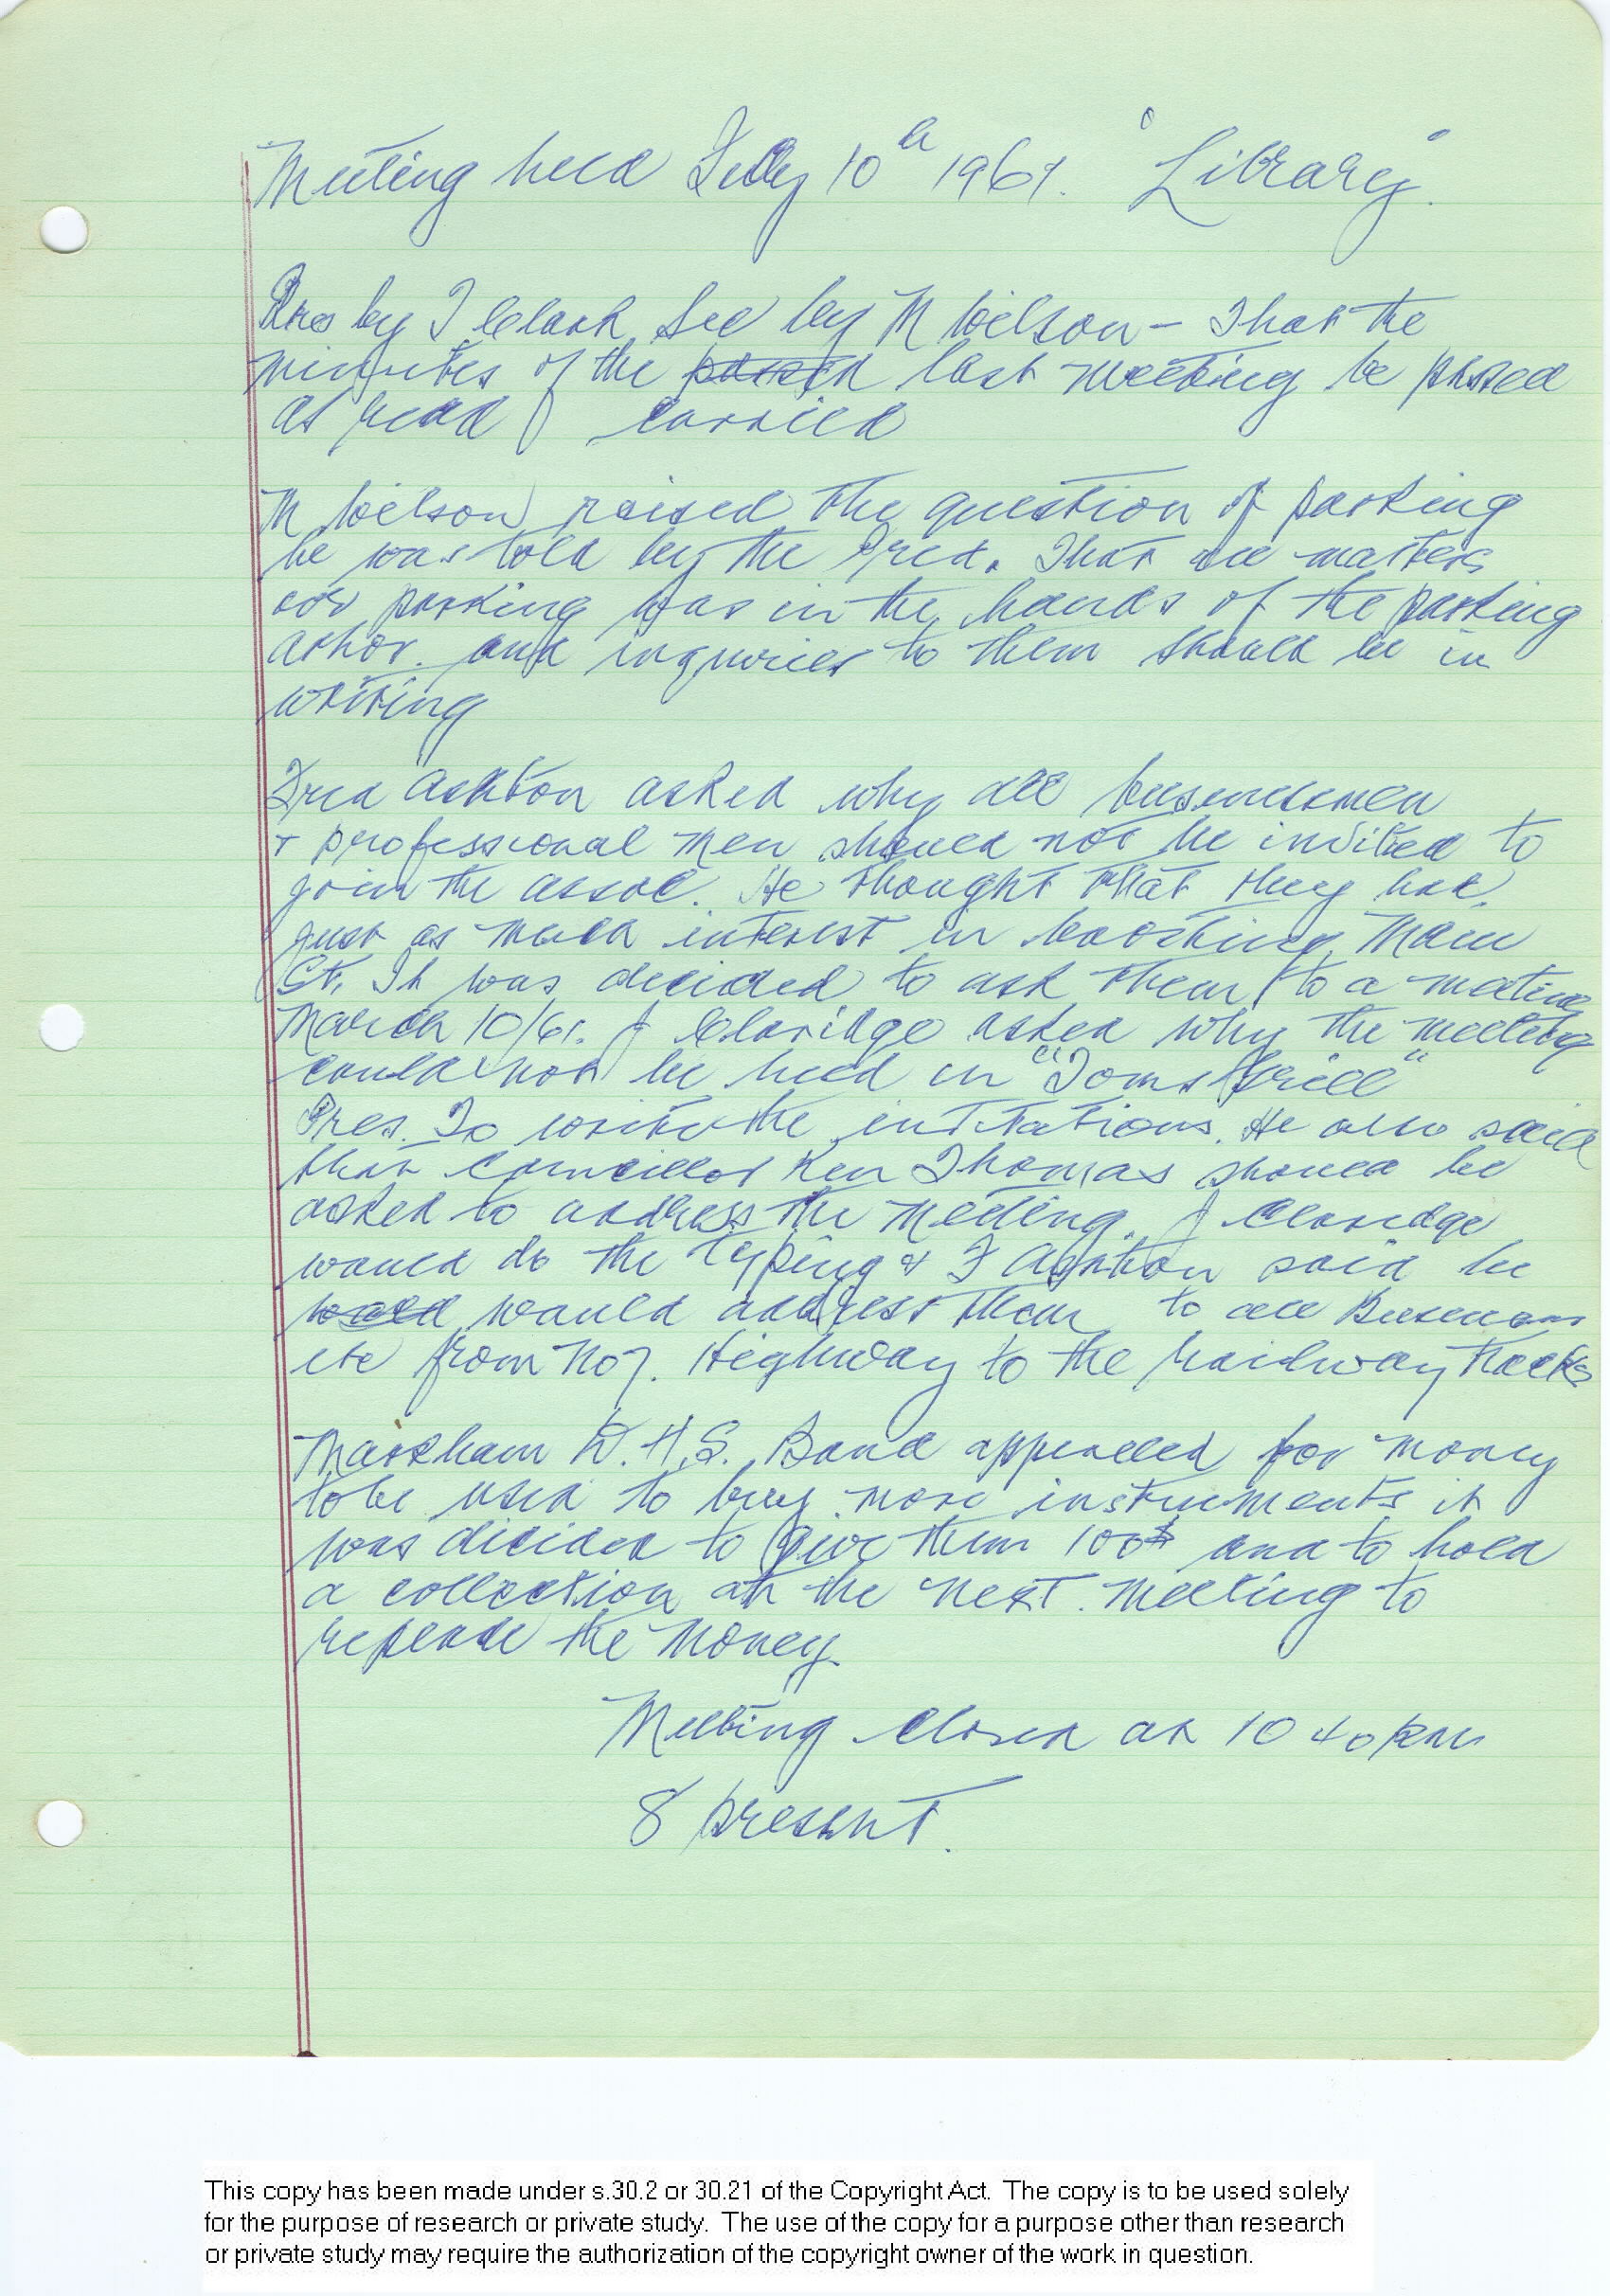 Meeting held July 10th 1961. "Library".
Pres by J Clark Sec by M Wilson – That the
minutes of the passed last meeting be passed
as read carried
M Wilson raised the question of parking
he was told by the Pred. That all matters
parking was in the hands of the parking
athor. and inquiries to them should be in
writing
Fred Ashton asked why all businessmen
+ professional men should not be invited to
join the assoc. He thought that they had
just as much interest in boosting Main
St. It was decided to ask them to a meeting
March 10/61. J Claridge asked why the meeting
could not be held in "Toms Grill"
Pres. To write the invitations. He also said
that Councillor Ken Thomas should be
asked to address the meeting. J Claridge
would do the typing & F Ashton said he
would would address them to all Businesmen
etc from No 7. Highway to the railway tracks
Markham D.H.S. Band appealled for money
to be used to buy more instruments it
was decided to give them 100$ and to hold
a collection at the next meeting to
replace the money.
Meeting closed at 10 40 PM
8 present.
This copy has been made under s.30.2 or 30.21 of the Copyright Act. The copy is to be used solely
for the purpose of research or private study. The use of the copy for a purpose other than research
or private study may require the authorization of the copyright owner of the work in question.